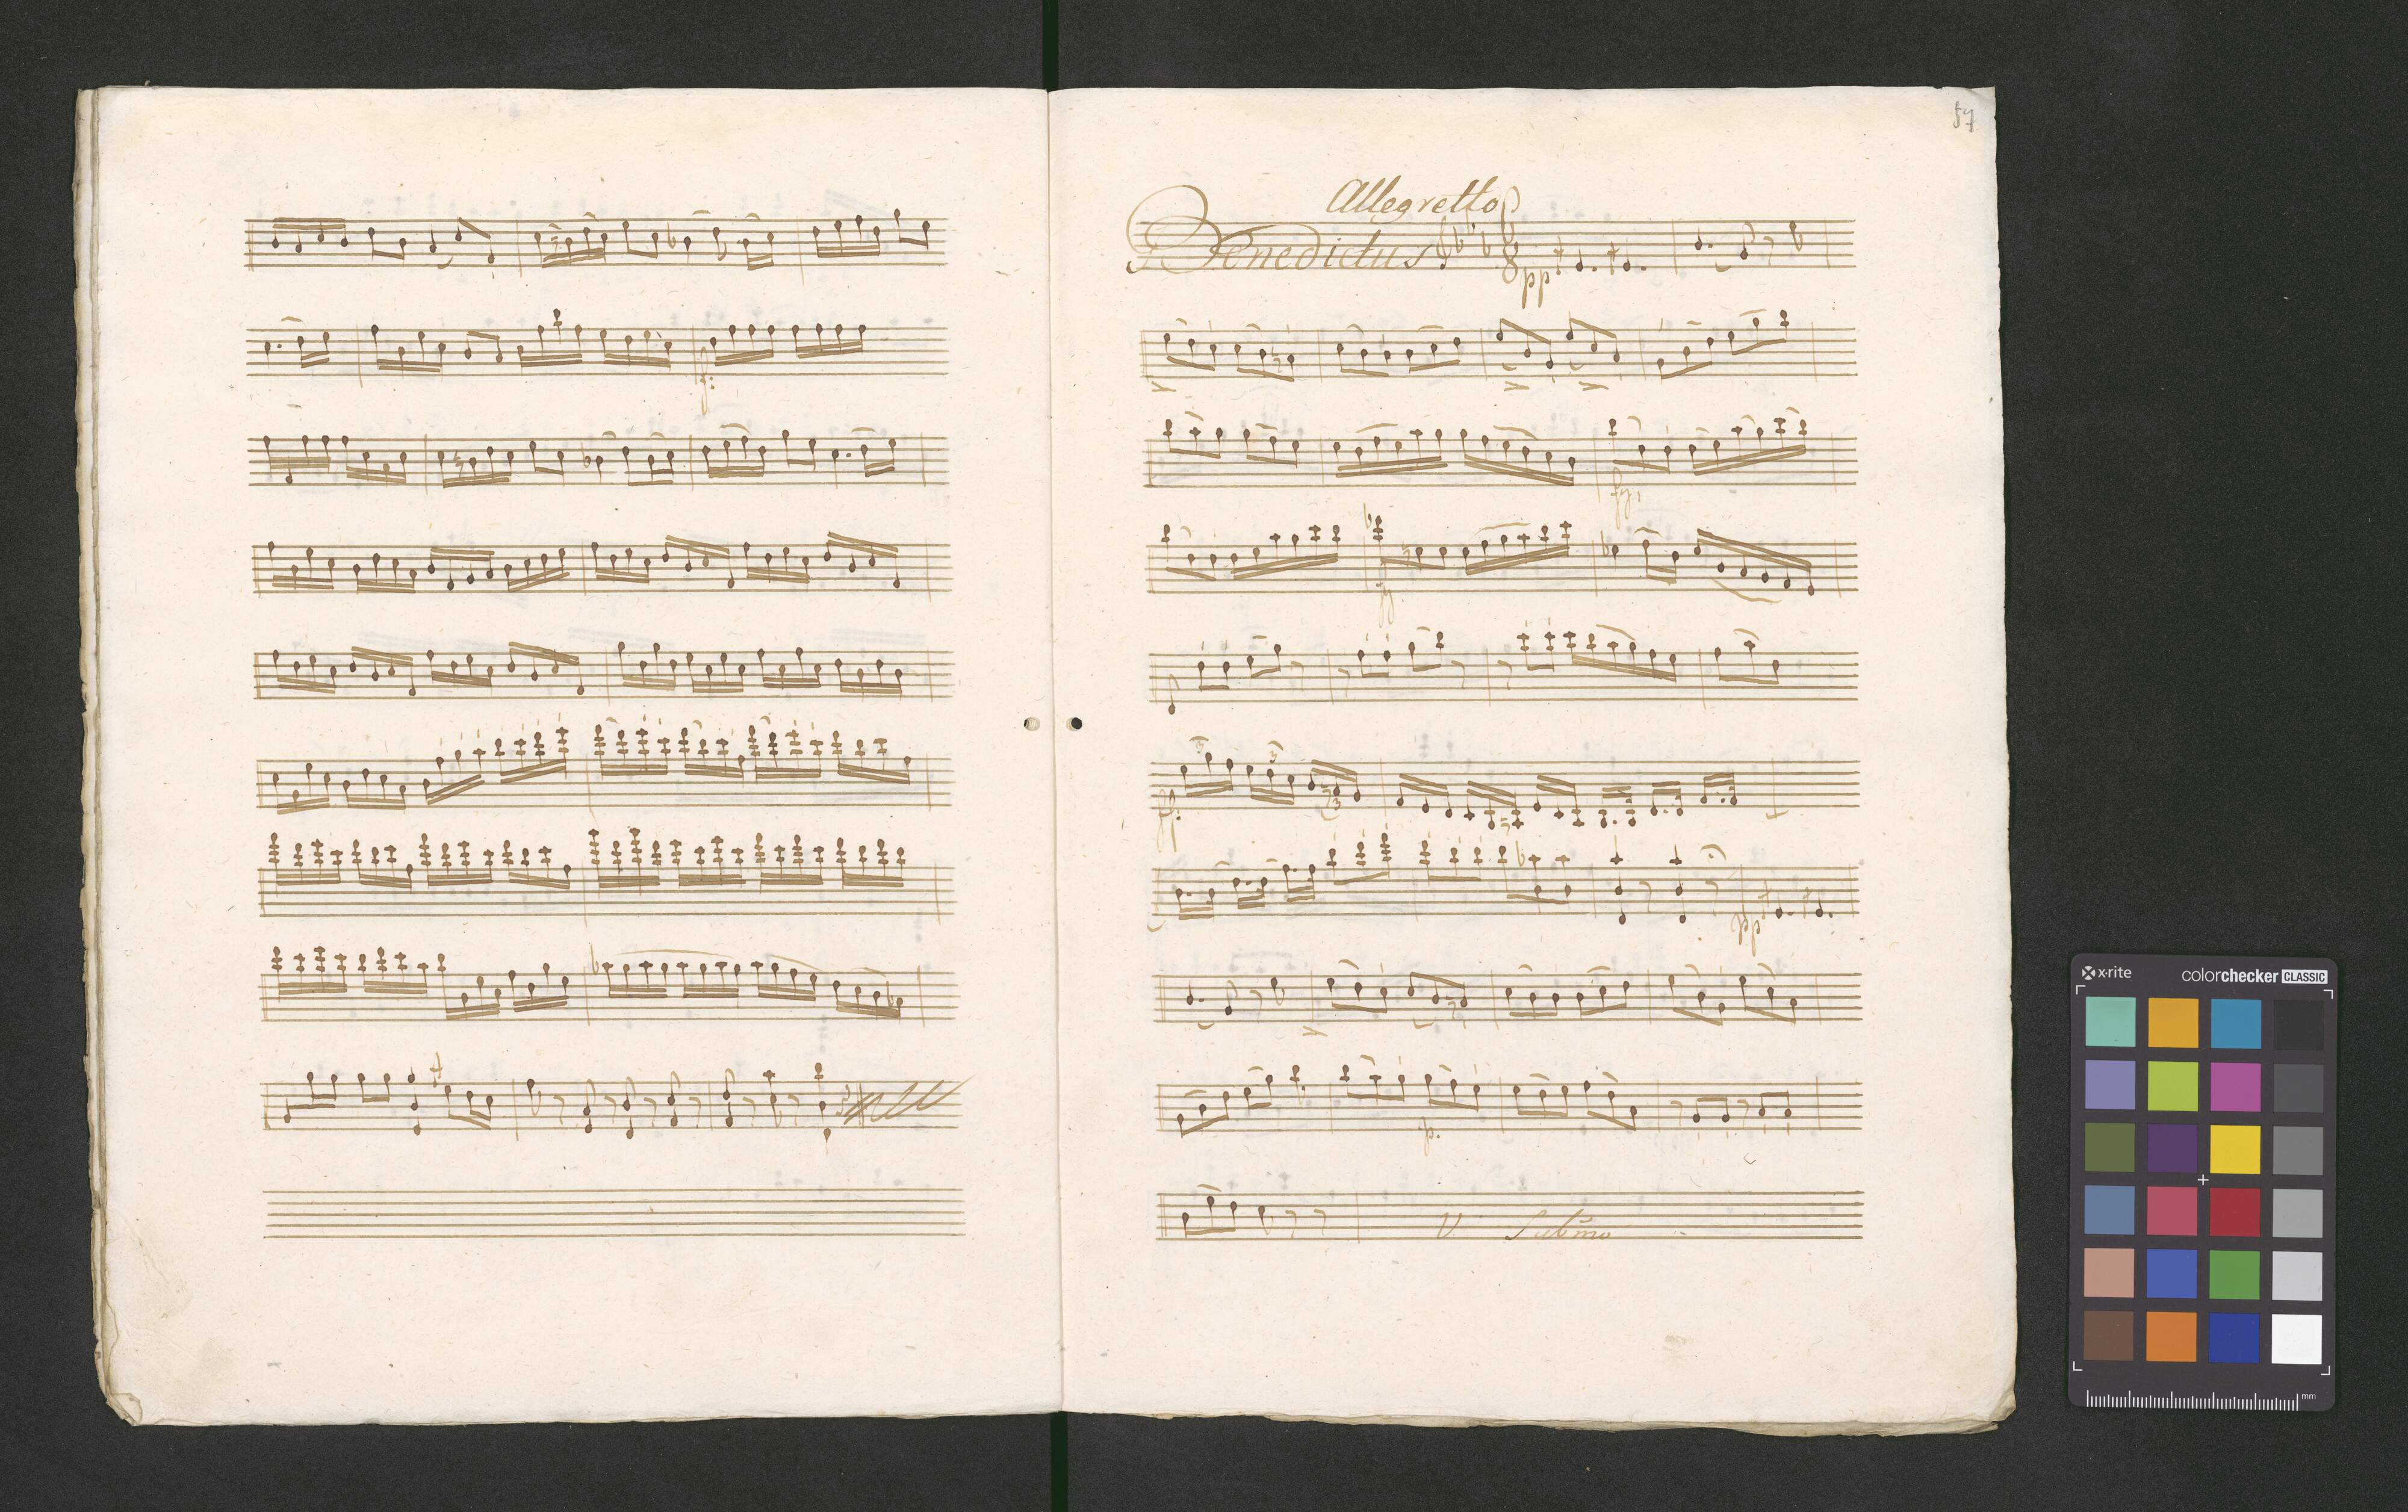 f:
57
Allegretto
Benedictus
pp
ff:
3
3
3
pp
V Subito
x-rite colorchecker CLASSIC
mm